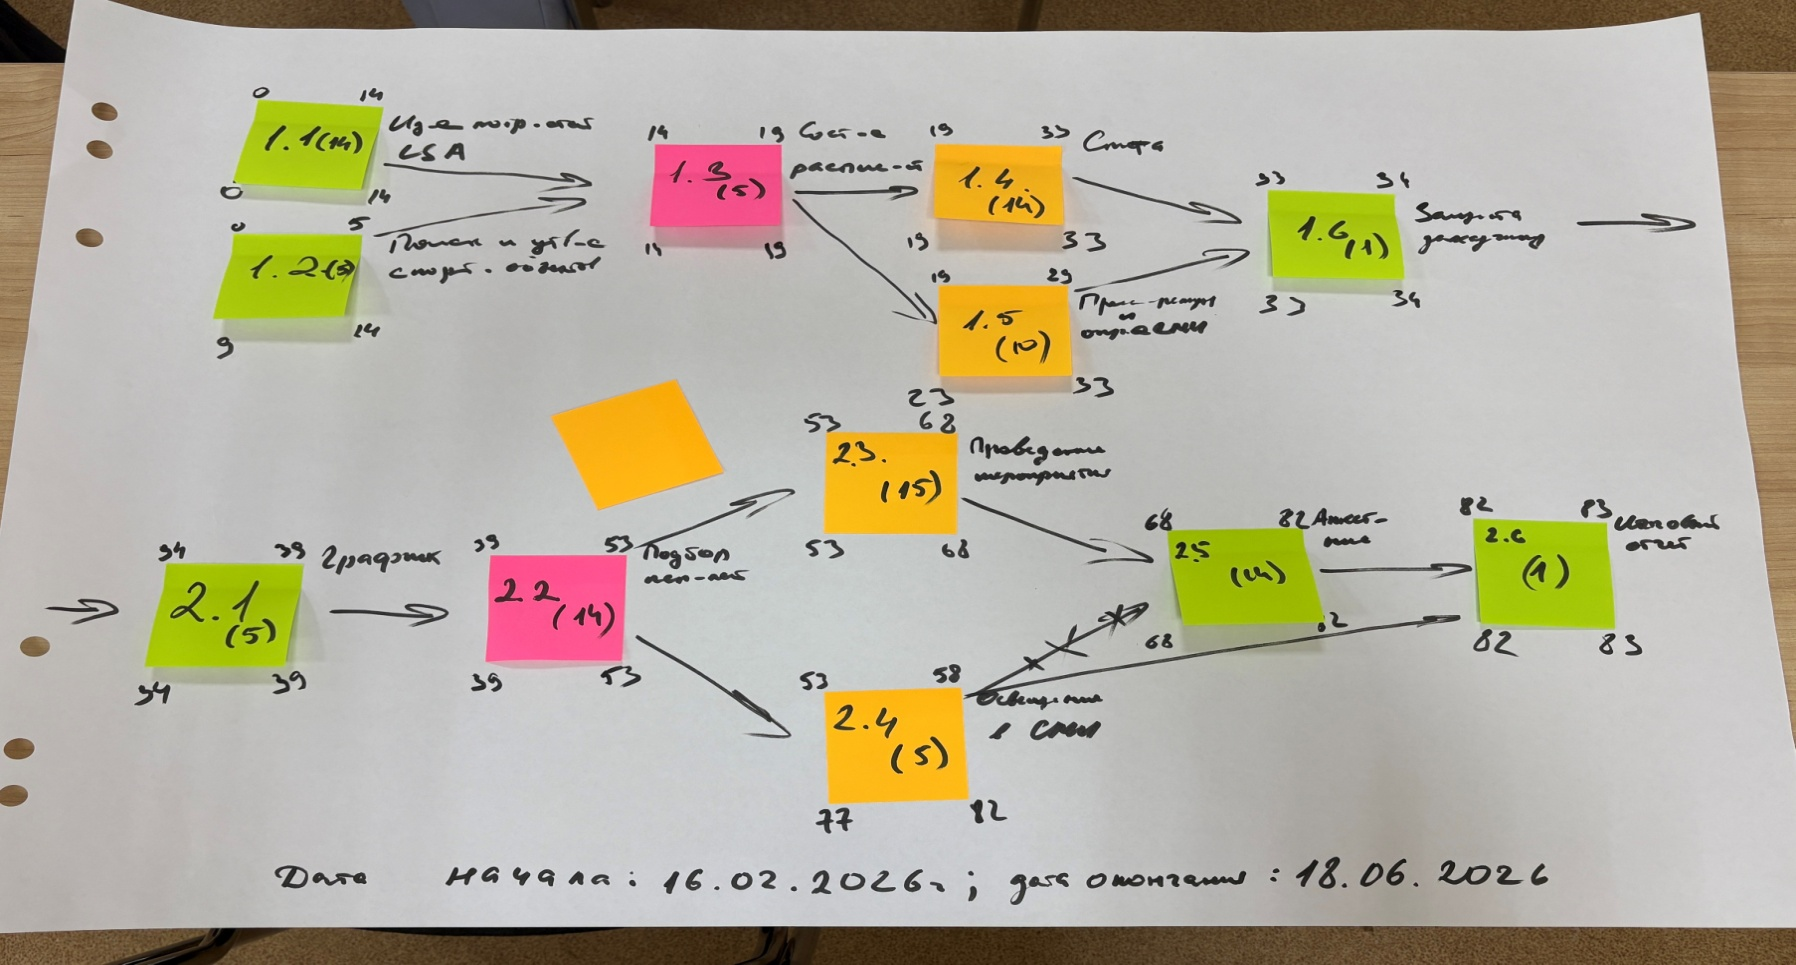 0 14
1.1(14)
LSA
0 14
0 5
1.2(5)
Поиск и утв-е
спорт. объектов
9 14
14 19
1.3
(5)
14 19
Сост-е
распис-й
19 33
1.4.
(14)
19 33
Смета
19 29
1.5
(10)
23 33
Пресс-релизы
и
33 34
1.6
(1)
33 34
Защита
34 39
2.1
(5)
34 39
График
39 53
2.2
(14)
39 53
Подбор
53 68
2.3.
(15)
53 68
Проведение
мероприятия
53 58
2.4
(5)
77 82
Освещение
в СМИ
68 82
2.5
(14)
68 82
82 83
2.6
(1)
82 83
Итоговый
отчет
Дата начала: 16.02.2026г; дата окончания: 18.06.2026